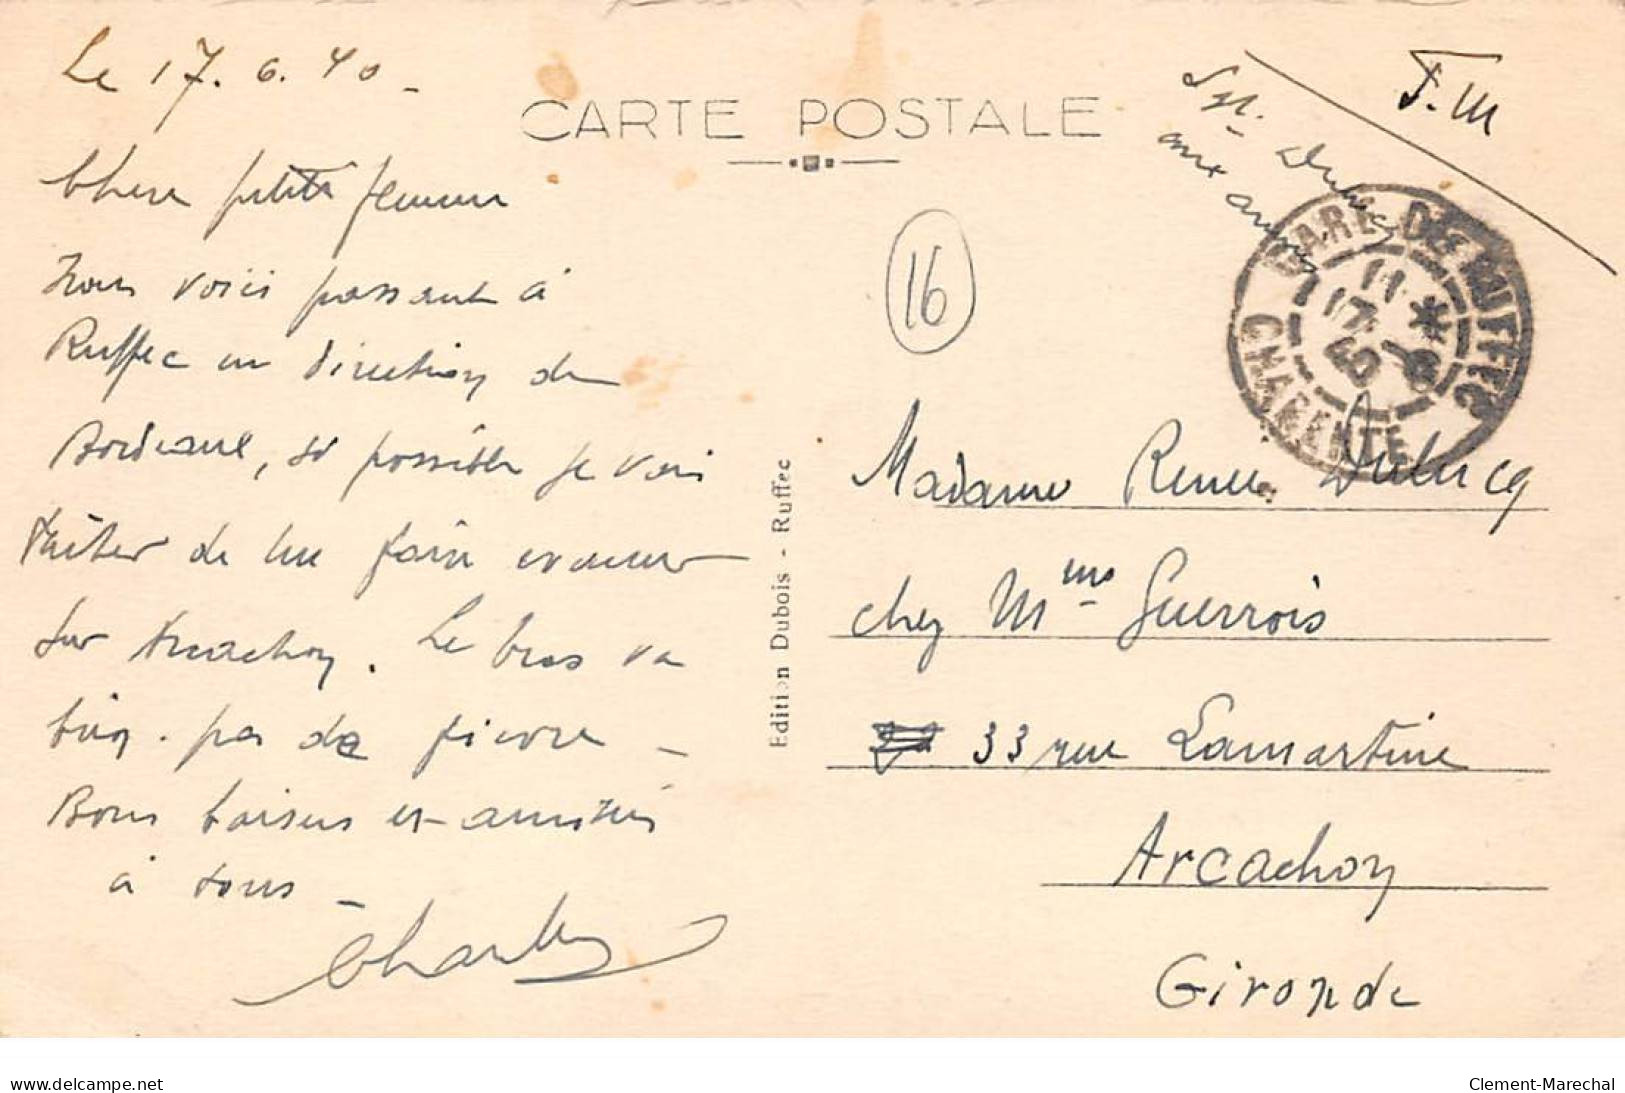 Le 17.6.40 -
CARTE POSTALE
F.M
Sgt. Dulucq
aux armées
Chere petite femme
Nous voici passant à
Ruffec en direction de
Bordeaux, si possible je vais
tâcher de me faire evacuer
sur Arcachon. Le bras va
bien. pas de fièvre -
Bons baisers et amitiés
à tous -
Charles
16
GARE DE RUFFEC
11 *
17 - 6
40
CHARENTE
Edition Dubois - Ruffec
Madame Renée Dulucq
chez Mme Guerrois
33 rue Lamartine
Arcachon
Gironde
www.delcampe.net
Clement-Marechal